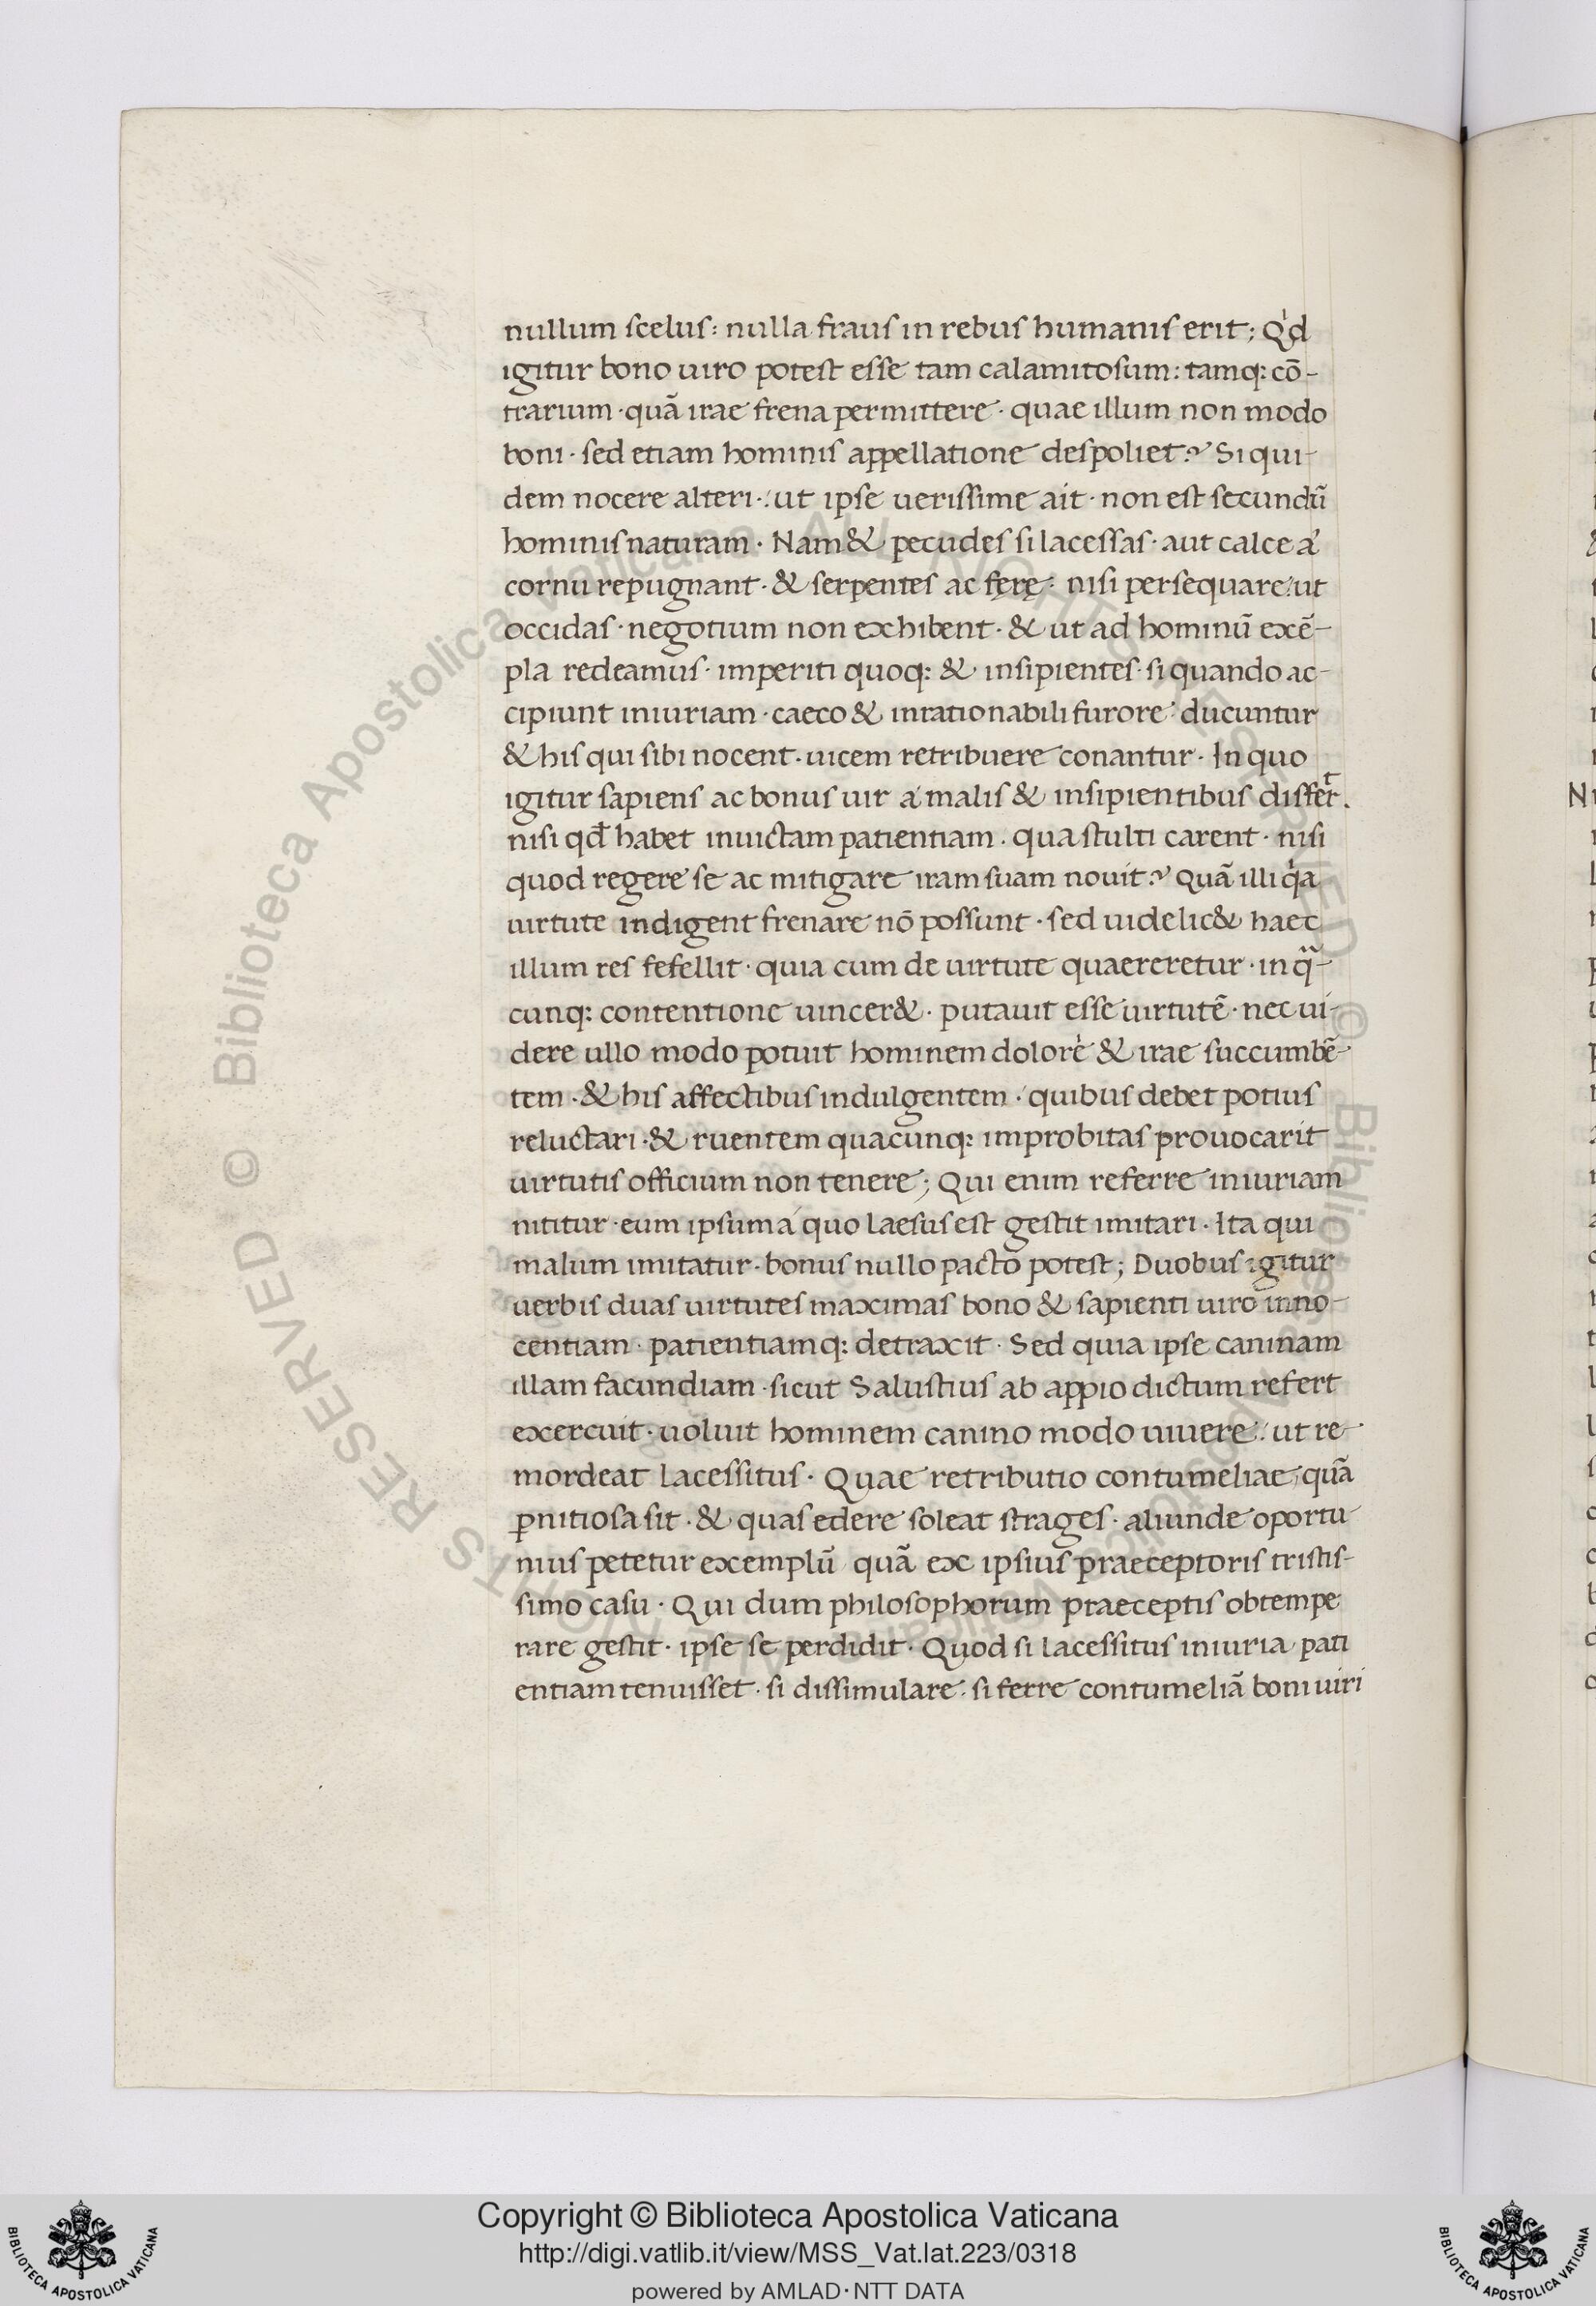 nullum scelus: nulla fraus in rebus humanis erit; Qͥd
igitur bono uiro potest esse tam calamitosum: tamq: cō-
trarium · quā irae frena permittere · quae illum non modo
boni · sed etiam hominis appellatione despoliet? Si qui-
dem nocere alteri: ut ipse uerissime ait · non est secundū
hominis naturam · Nam & pecudes si lacessas · aut calce á
cornu repugnant · & serpentes ac fęrę · nisi persequare: ut
occidas · negotium non exhibent · & ut ad hominū exē-
pla redeamus · imperiti quoq: & insipientes · si quando ac-
cipiunt iniuriam · caeco & inrationabili furore ducuntur
& his qui sibi nocent · uicem retribuere conantur · In quo
igitur sapiens ac bonus uir á malis & insipientibus differt.
nisi qđ habet inuictam patientiam · qua stulti carent · nisi
quod regere se ac mitigare iram suam nouit? Quā illi qͥa
uirtute indigent frenare nō possunt · sed uidelic& haec
illum res fefellit · quia cum de uirtute quaereretur · in qͣ-
cunq: contentione uincer& · putauit esse uirtutē · nec ui-
dere ullo modo potuit hominem dolorí & irae succumbē-
tem · & his affectibus indulgentem · quibus debet potius
reluctari · & ruentem quacunq: improbitas prouocarit
uirtutis officium non tenere; Qui enim referre iniuriam
nititur · eum ipsum á quo laesus est gestit imitari · Ita qui
malum imitatur · bonus nullo pacto potest; Duobus igitur
uerbis duas uirtutes maximas bono & sapienti uiro inno-
centiam · patientiamq: detraxit · Sed quia ipse caninam
illam facundiam · sicut Salustius ab appio dictum refert
exercuit · uoluit hominem canino modo uiuere: ut re-
mordeat lacessitus · Quae retributio contumeliae, quā
ꝑnitiosa sit · & quas edere soleat strages · aliunde oportu
nius petetur exemplū quā ex ipsius praeceptoris tristis-
simo casu · Qui dum philosophorum praeceptis obtempe
rare gestit · ipse se perdidit · Quod si lacessitus iniuria pati
entiam tenuisset · si dissimulare · si ferre contumeliā boni uiri
© Biblioteca Apostolica Vaticana ALL RIGHTS RESERVED © Biblioteca Apostolica Vaticana ALL RIGHTS RESERVED
Copyright © Biblioteca Apostolica Vaticana
http://digi.vatlib.it/view/MSS_Vat.lat.223/0318
powered by AMLAD·NTT DATA
BIBLIOTECA APOSTOLICA VATICANA
BIBLIOTECA APOSTOLICA VATICANA